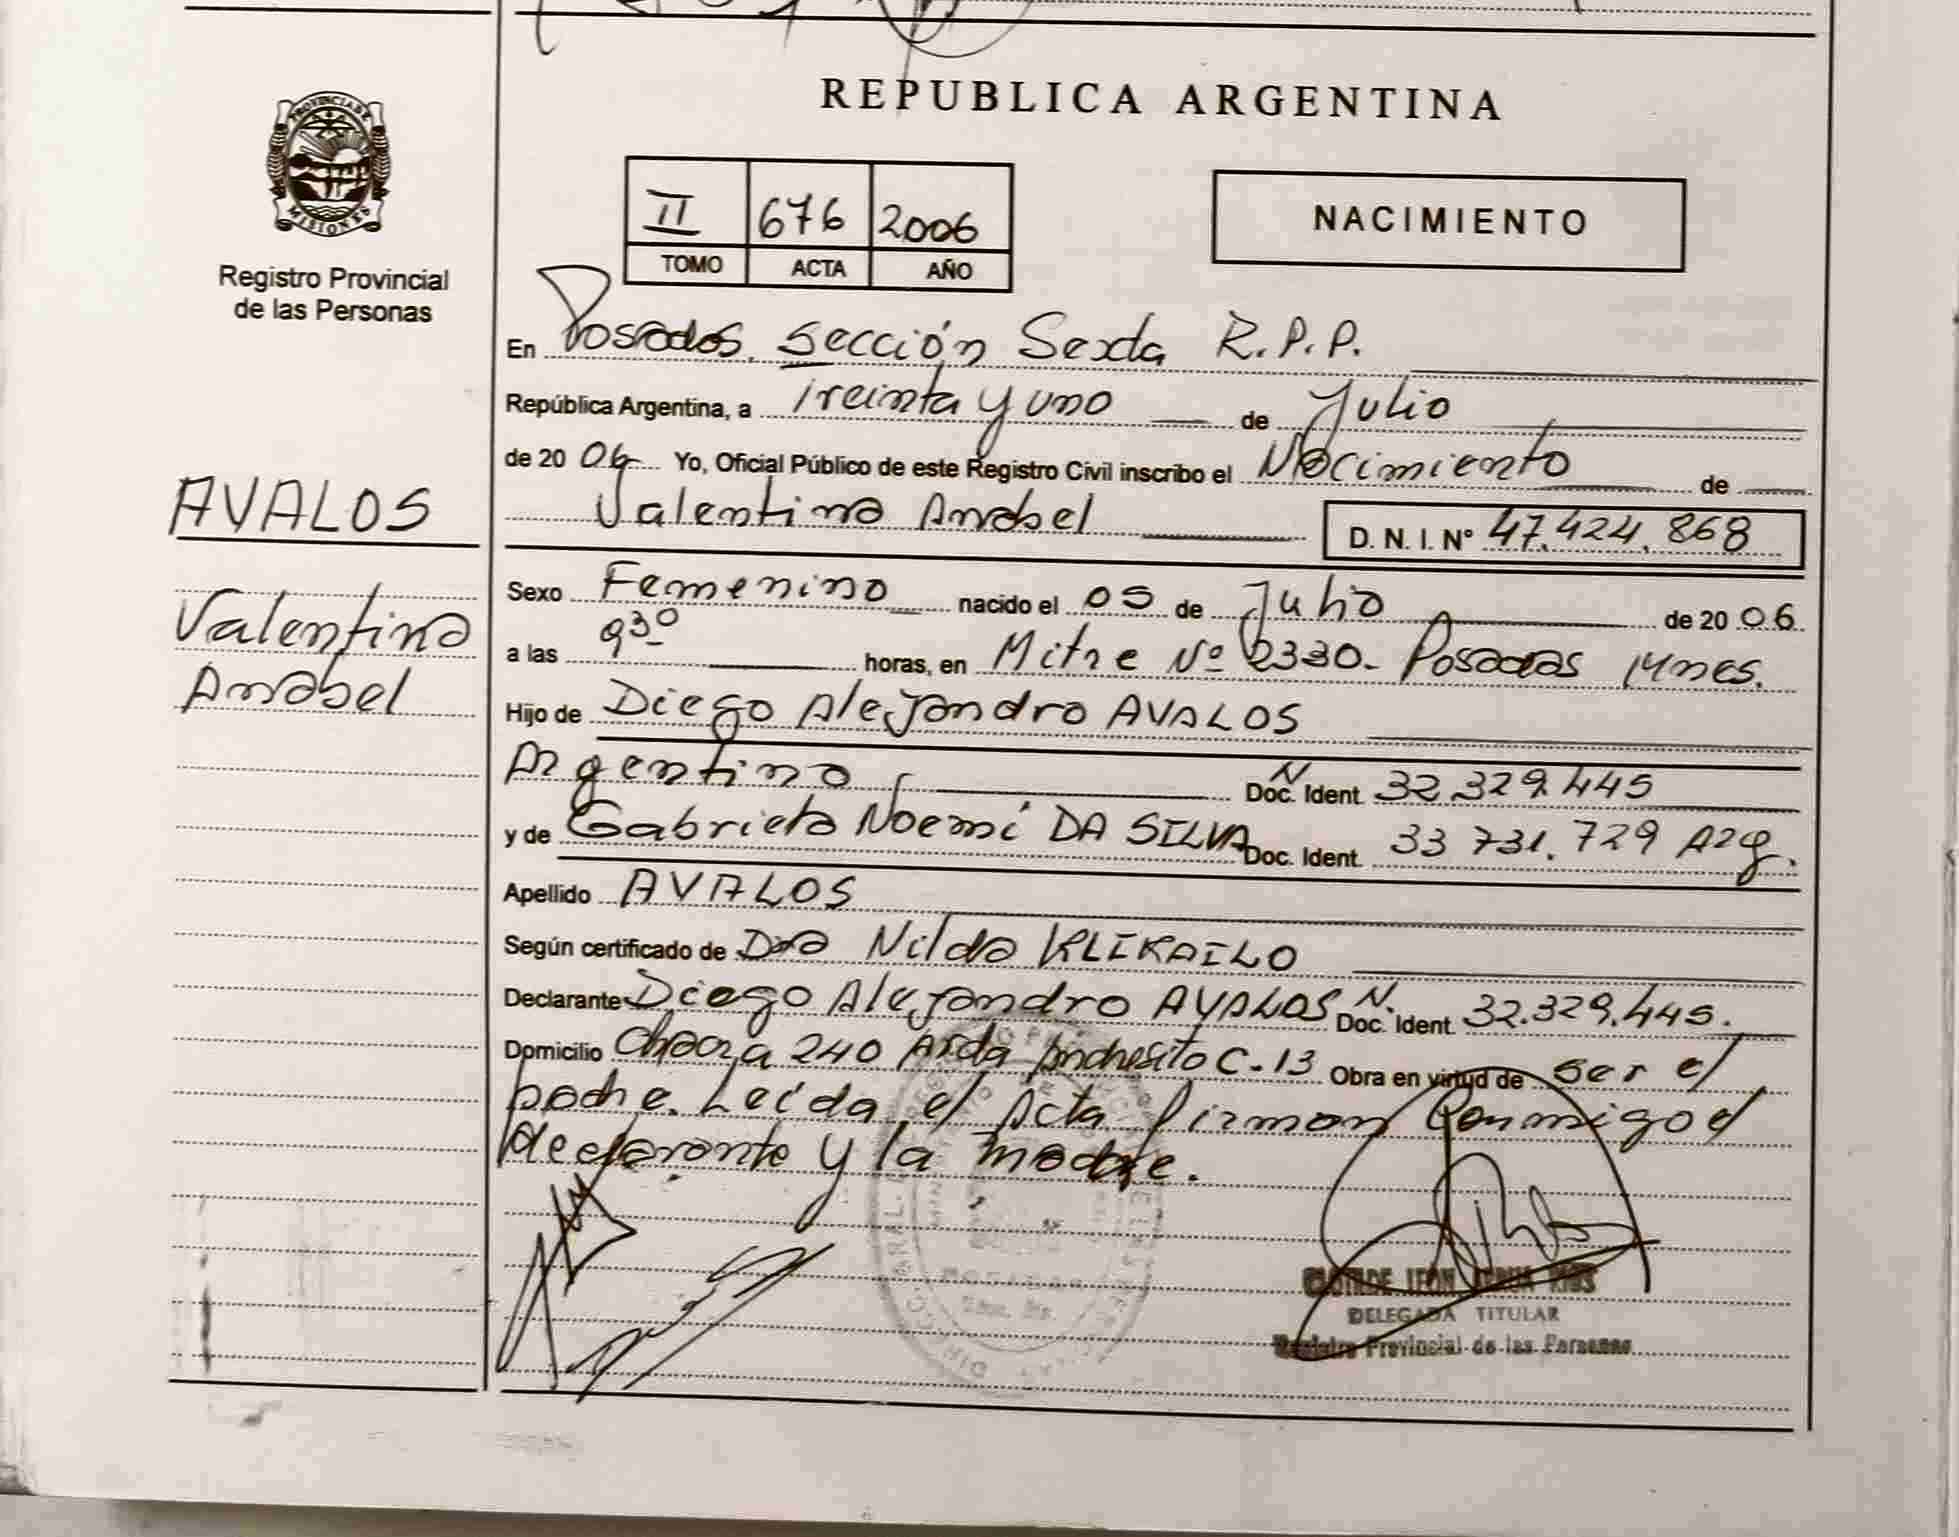 PROVINCIA DE
MISIONES
Registro Provincial
de las Personas
AVALOS
Valentina
Anabel
REPUBLICA ARGENTINA
II 676 2006
TOMO ACTA AÑO
NACIMIENTO
En Posadas, Sección Sexta R.P.P.
República Argentina, a Treinta y uno de Julio
de 20 06 Yo, Oficial Público de este Registro Civil inscribo el Nacimiento de
Valentina Anabel D. N. I. N° 47.424.868
Sexo Femenino nacido el 05 de Julio de 20 06.
a las 9 30 horas, en Mitre Nº 2330. Posadas Mnes.
Hijo de Diego Alejandro AVALOS
Argentino N. Doc. Ident. 32.329.445
y de Gabriela Noemí DA SILVA Doc. Ident. 33 731.729 Arg.
Apellido AVALOS
Según certificado de Dra Nilda KLIKAILO
Declarante Diego Alejandro AVALOS N. Doc. Ident. 32.329.445.
Domicilio Chacra 240 Avda C-13 Obra en virtud de ser el
padre. Leída el Acta firman conmigo el
declarante y la madre.
DELEGADA TITULAR
Registro Provincial de las Personas